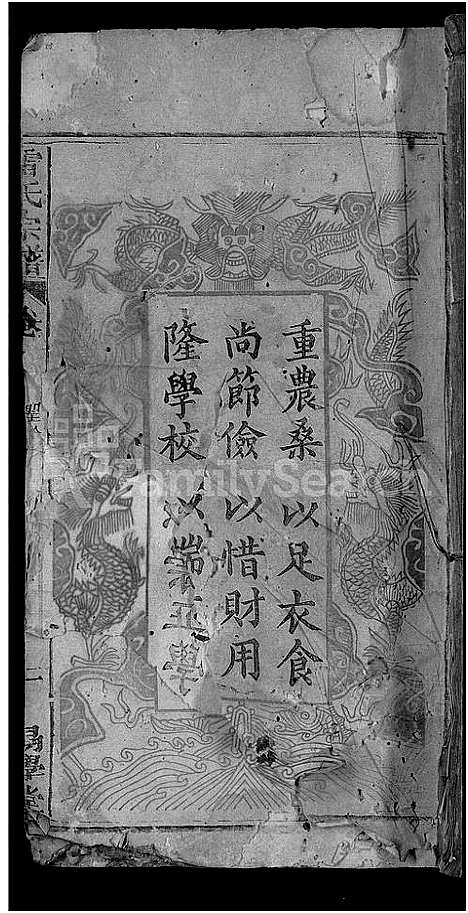 重農桑 以足衣食
尚節儉 以惜財用
隆學校 以端士學
雷氏宗譜
卷
聖
一
易學堂
FamilySearch